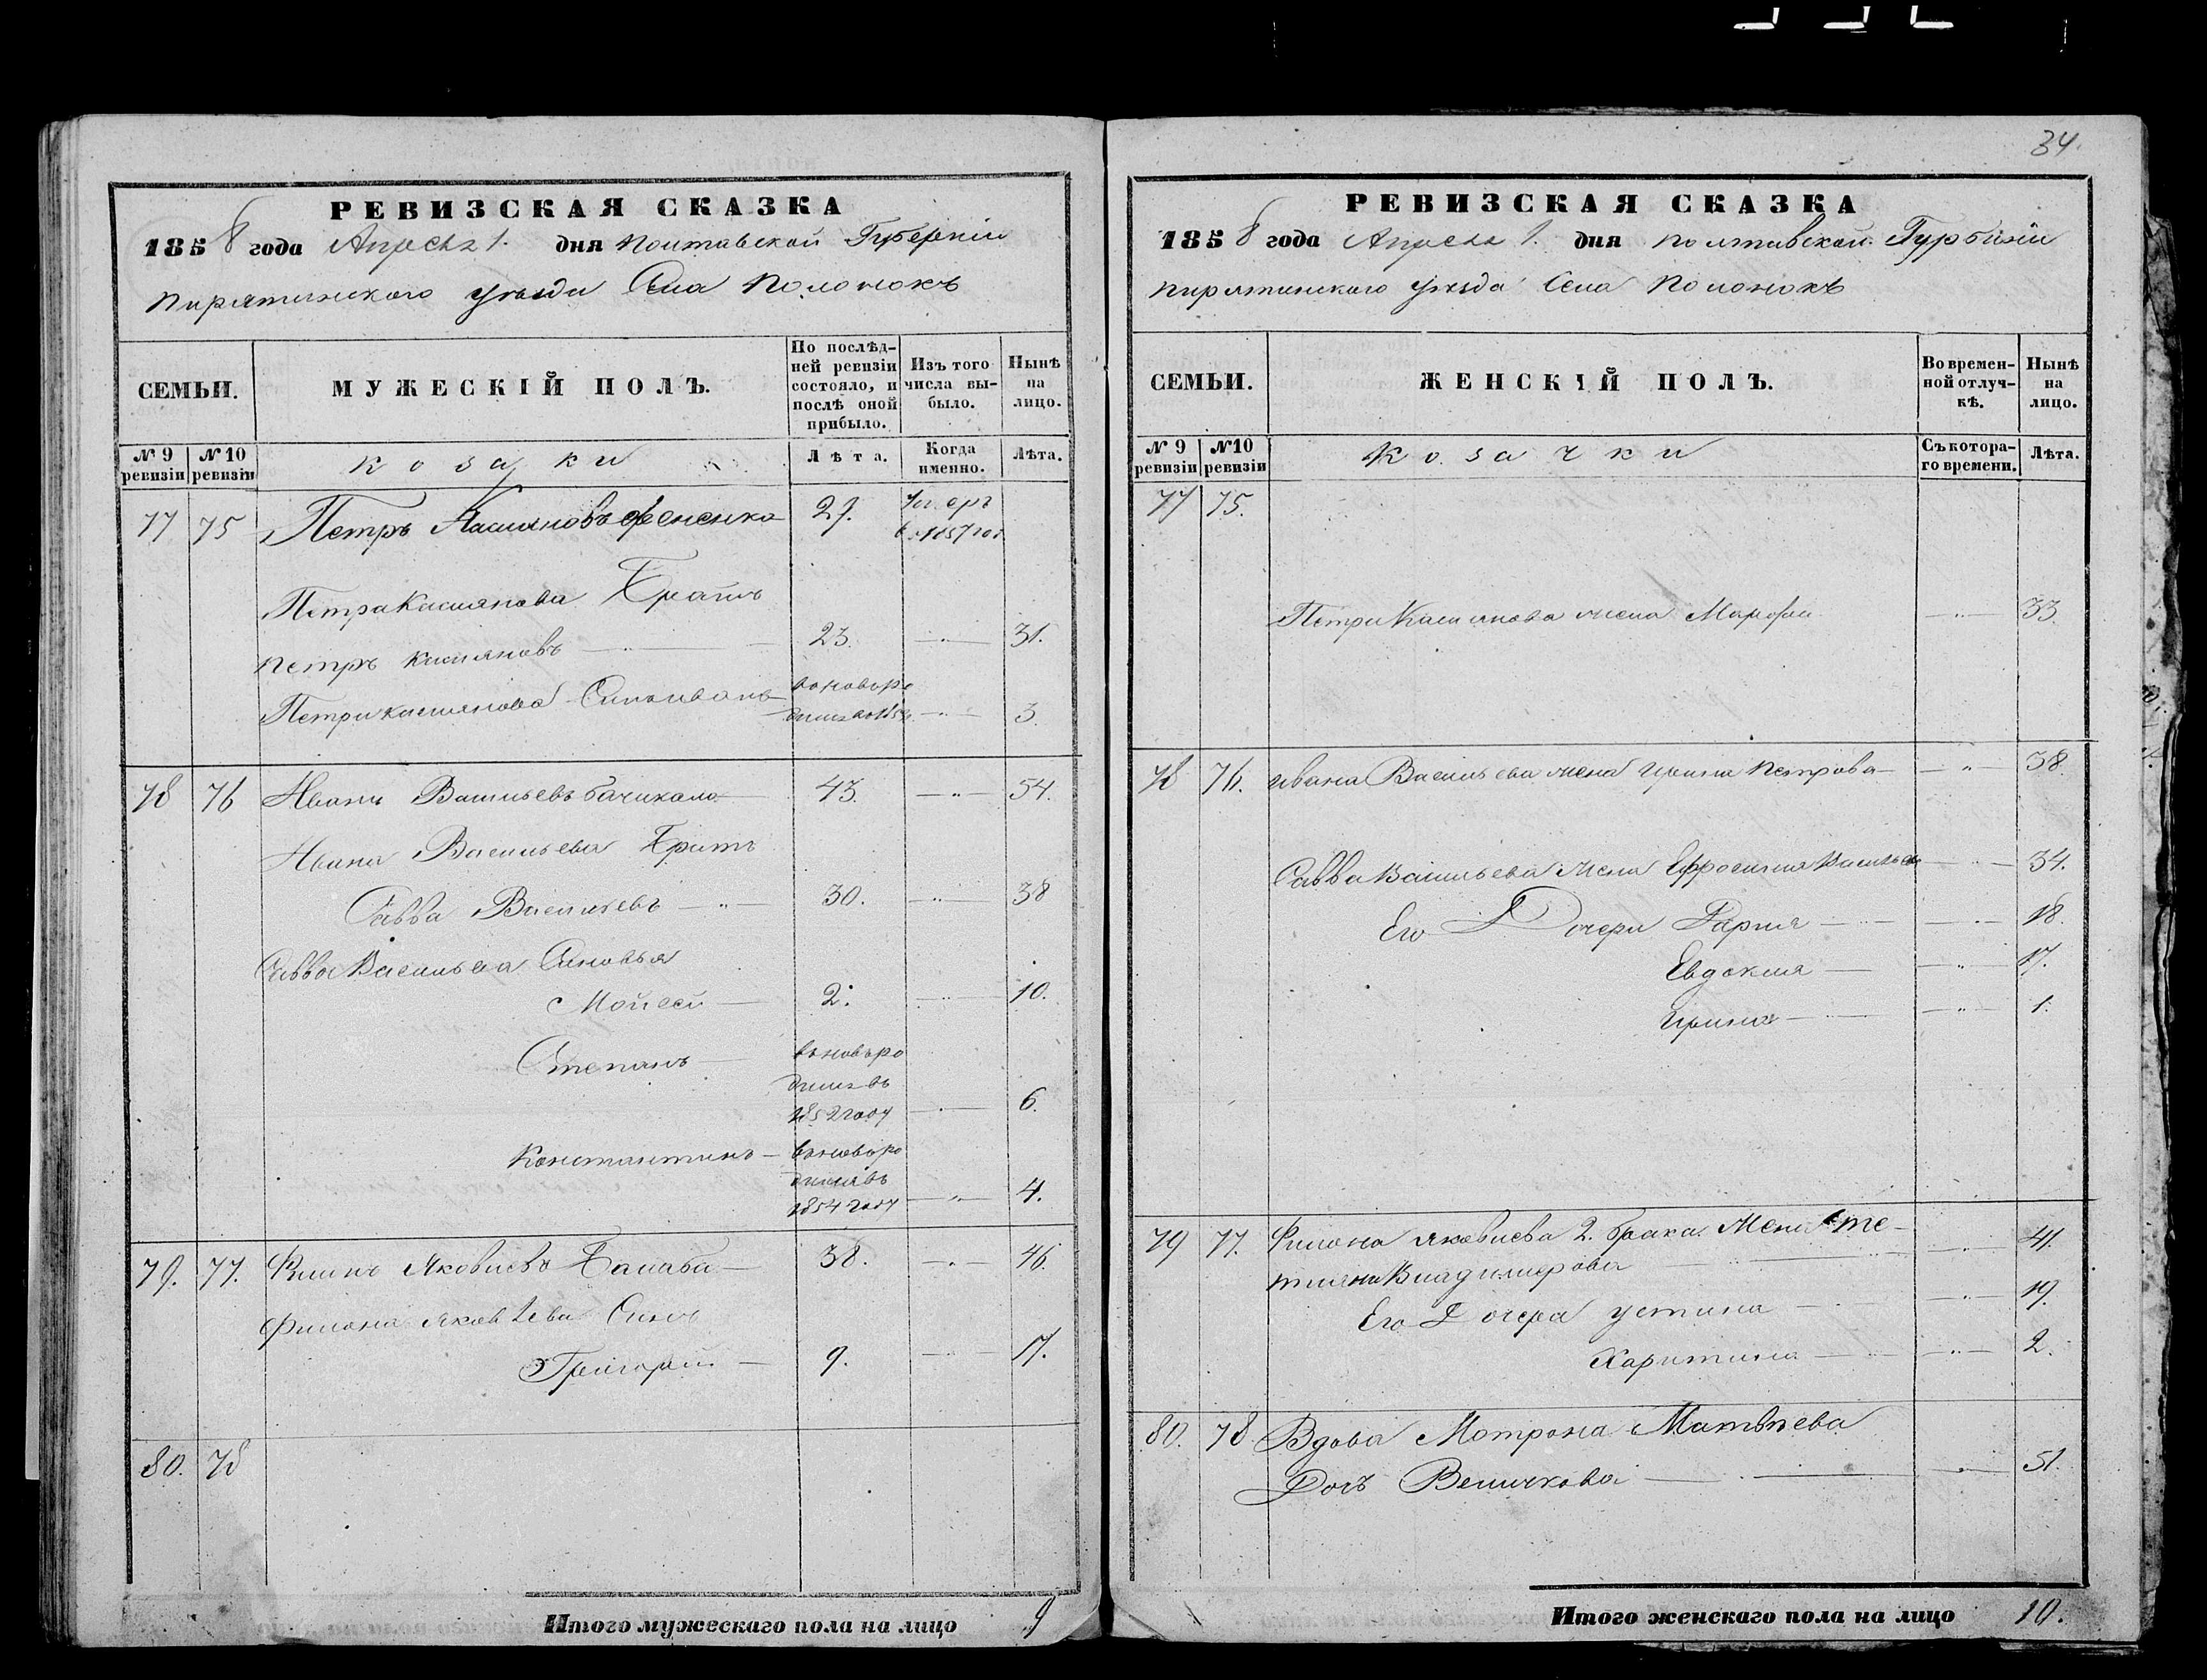 34.
РЕВИЗСКАЯ СКАЗКА
1858 года Апреля 1. дня Полтавской Губернiи
Пирятинского уезда Села Полонокъ
СЕМЬИ.
МУЖЕСКIЙ ПОЛЪ.
По послѣд-
ней ревизiи
состояло, и
послѣ оной
прибыло.
Изъ того
числа вы-
было.
Нынѣ
на
лицо.
№ 9
ревизiи
№ 10
ревизiи
козаки
Лѣта.
Когда
именно.
Лѣта.
77 75 Петръ Касияновъ 29. умеръ
в 1857 год
Петра Касиянова Братъ
Петръ Касияновъ — 23. — 31.
Петра Касиянова Сынъ Иванъ вновь ро
3.
78 76 Иванъ Васильевъ Бачикало 43. — 54.
Ивана Васильева Братъ
Савва Васильевъ — 30. — 38
Савва Васильева Сыновья
Мойсей — 2. — 10.
Степанъ — вновь ро
дився въ
1852 году — 6.
Константинъ — вновь ро
дився въ
1854 году — 4.
79. 77. Яковлевъ Балаба — 38. — 46.
Филона Яковлева Сынъ
Григорий — 9. — 17.
80. 78
Итого мужескаго пола на лицо 9
РЕВИЗСКАЯ СКАЗКА
1858 года Апреля 1. дня Полтавской Гурбинiи
Пирятинского уезда Села Полонокъ
СЕМЬИ.
ЖЕНСКIЙ ПОЛЪ.
Во времен-
ной отлуч-
кѣ.
Нынѣ
на
лицо.
№ 9
ревизiи
№ 10
ревизiи
козачки
Съ котора-
го времени.
Лѣта.
77 75.
Петра Касиянова жена Марфа — 33.
78 76. Ивана Васильева жена Ирина Петрова — 38.
Савва Васильева жена Ефросиния Васильева — 34.
Его Дочери Дария — 18.
Евдокия — 17.
Ирина — 1.
79 77. Филона Яковлева 2. брака Жена Те-
тияна Владимирова — 41.
Его Дочера Устина — 19.
Харитина — 2.
80. 78 Вдова Мотрона Матвѣева
Дочъ Величкова — 51.
Итого женскаго пола на лицо 10.